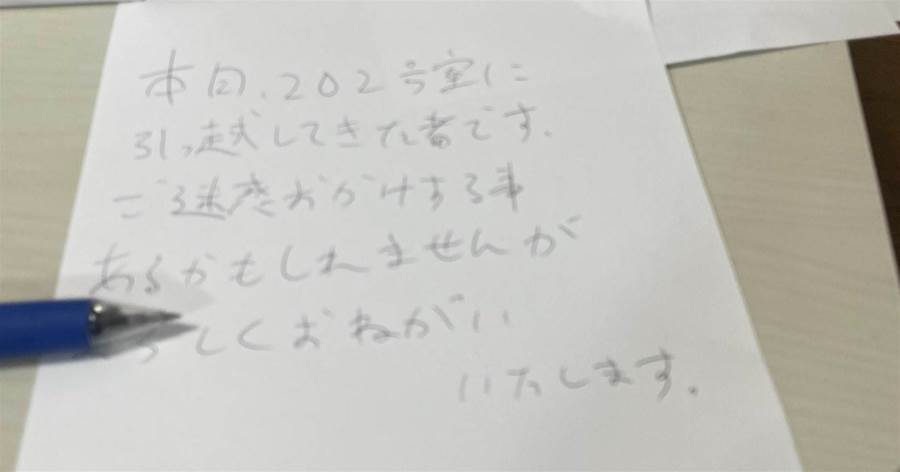 本日、202号室に
引っ越してきた者です.
ご迷惑おかけする事
あるかもしれませんが
しくおねがい
いたします.